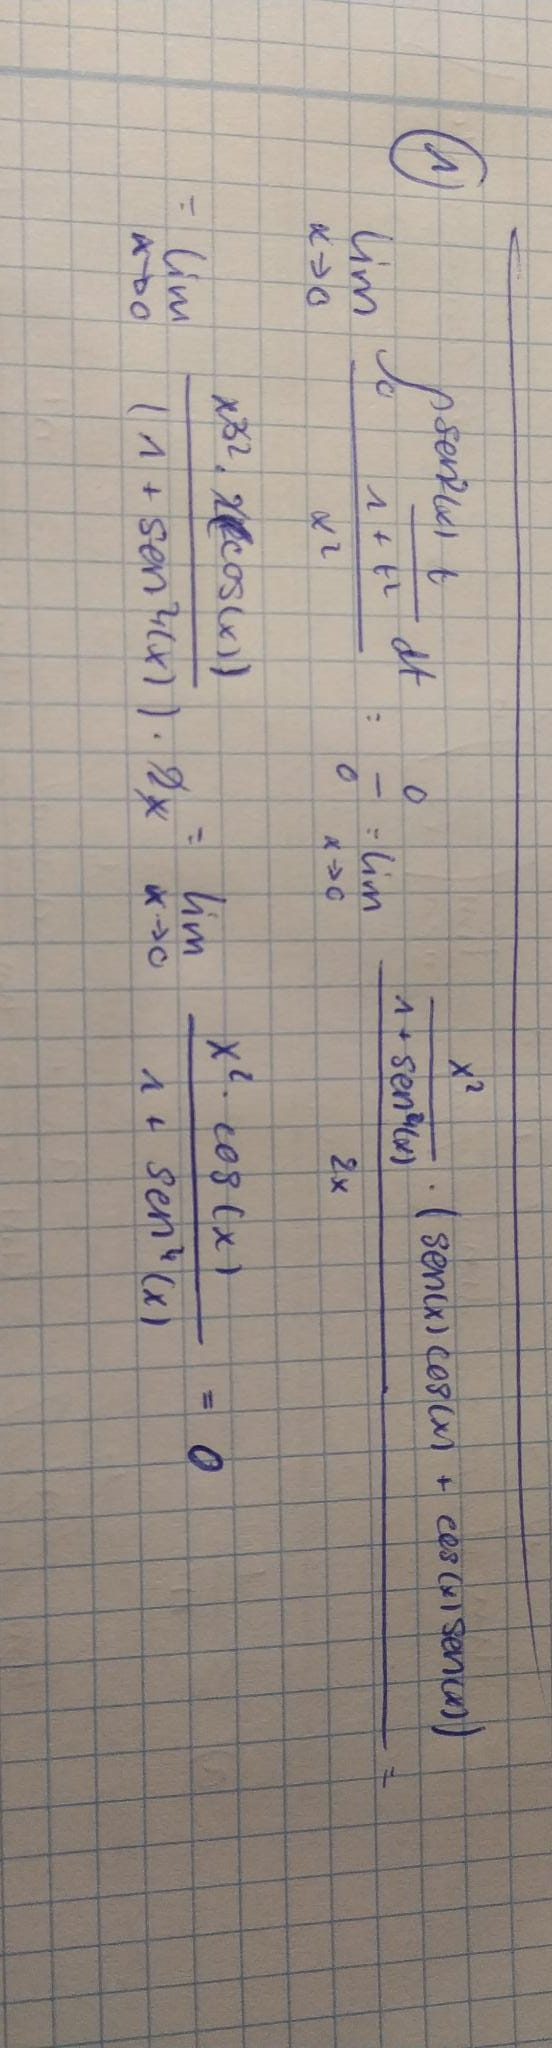 ① lim x→0 (∫₀^sen²(x) t/(1+t²) dt)/x² = 0/0 = lim x→0 (x²/(1+sen⁴(x)) · (sen(x)cos(x) + cos(x)sen(x)))/2x =
= lim x→0 (x³² · 2(cos(x)))/((1+sen⁴(x)) · 2x) = lim x→0 (x² · cos(x))/(1+sen⁴(x)) = 0